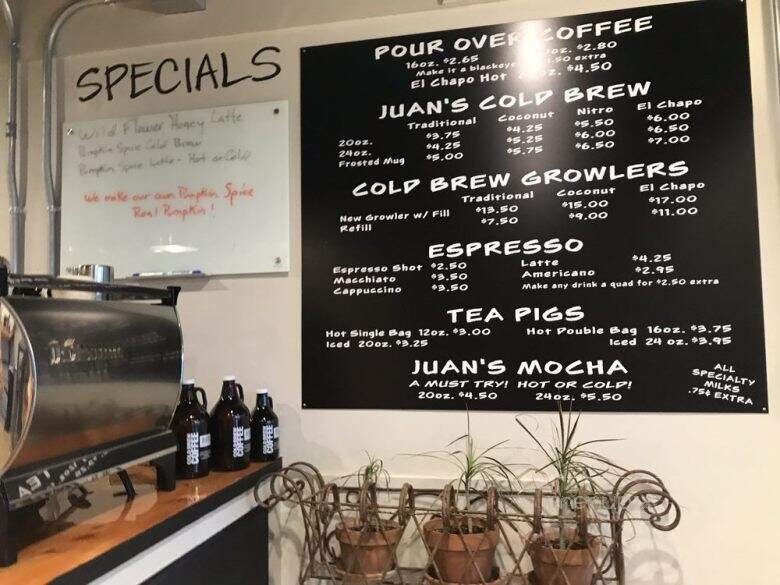 SPECIALS
Wild Flower Honey Latte
Pumpkin Spice Cold Brew
Pumpkin Spice Latte - Hot or Cold
We make our own Pumpkin Spice
Real Pumpkin!
POUR OVER COFFEE
16oz. $2.65 oz. $2.80
Make it a blackeye .50 extra
El Chapo Hot oz. $4.50
JUAN'S COLD BREW
Traditional Coconut Nitro El Chapo
20oz. $3.75 $4.25 $5.50 $6.00
24oz. $4.25 $5.25 $6.00 $6.50
Frosted Mug $5.00 $5.75 $6.50 $7.00
COLD BREW GROWLERS
Traditional Coconut El Chapo
New Growler w/ Fill $13.50 $15.00 $17.00
Refill $7.50 $9.00 $11.00
ESPRESSO
Espresso Shot $2.50 Latte $4.25
Macchiato $3.50 Americano $2.95
Cappuccino $3.50 Make any drink a quad for $2.50 extra
TEA PIGS
Hot Single Bag 12oz. $3.00 Hot Double Bag 16oz. $3.75
Iced 20oz. $3.25 Iced 24 oz. $3.95
JUAN'S MOCHA
A MUST TRY! HOT OR COLD!
20oz. $4.50 24oz. $5.50
ALL
SPECIALTY
MILKS
.75¢ EXTRA
COFFEE
COFFEE
COFFEE